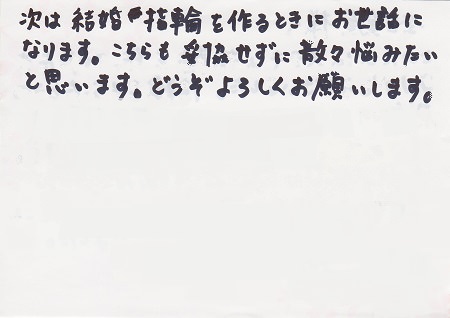 次は結婚指輪を作るときにお世話に
なります。こちらも妥協せずに散々悩みたい
と思います。どうぞよろしくお願いします。